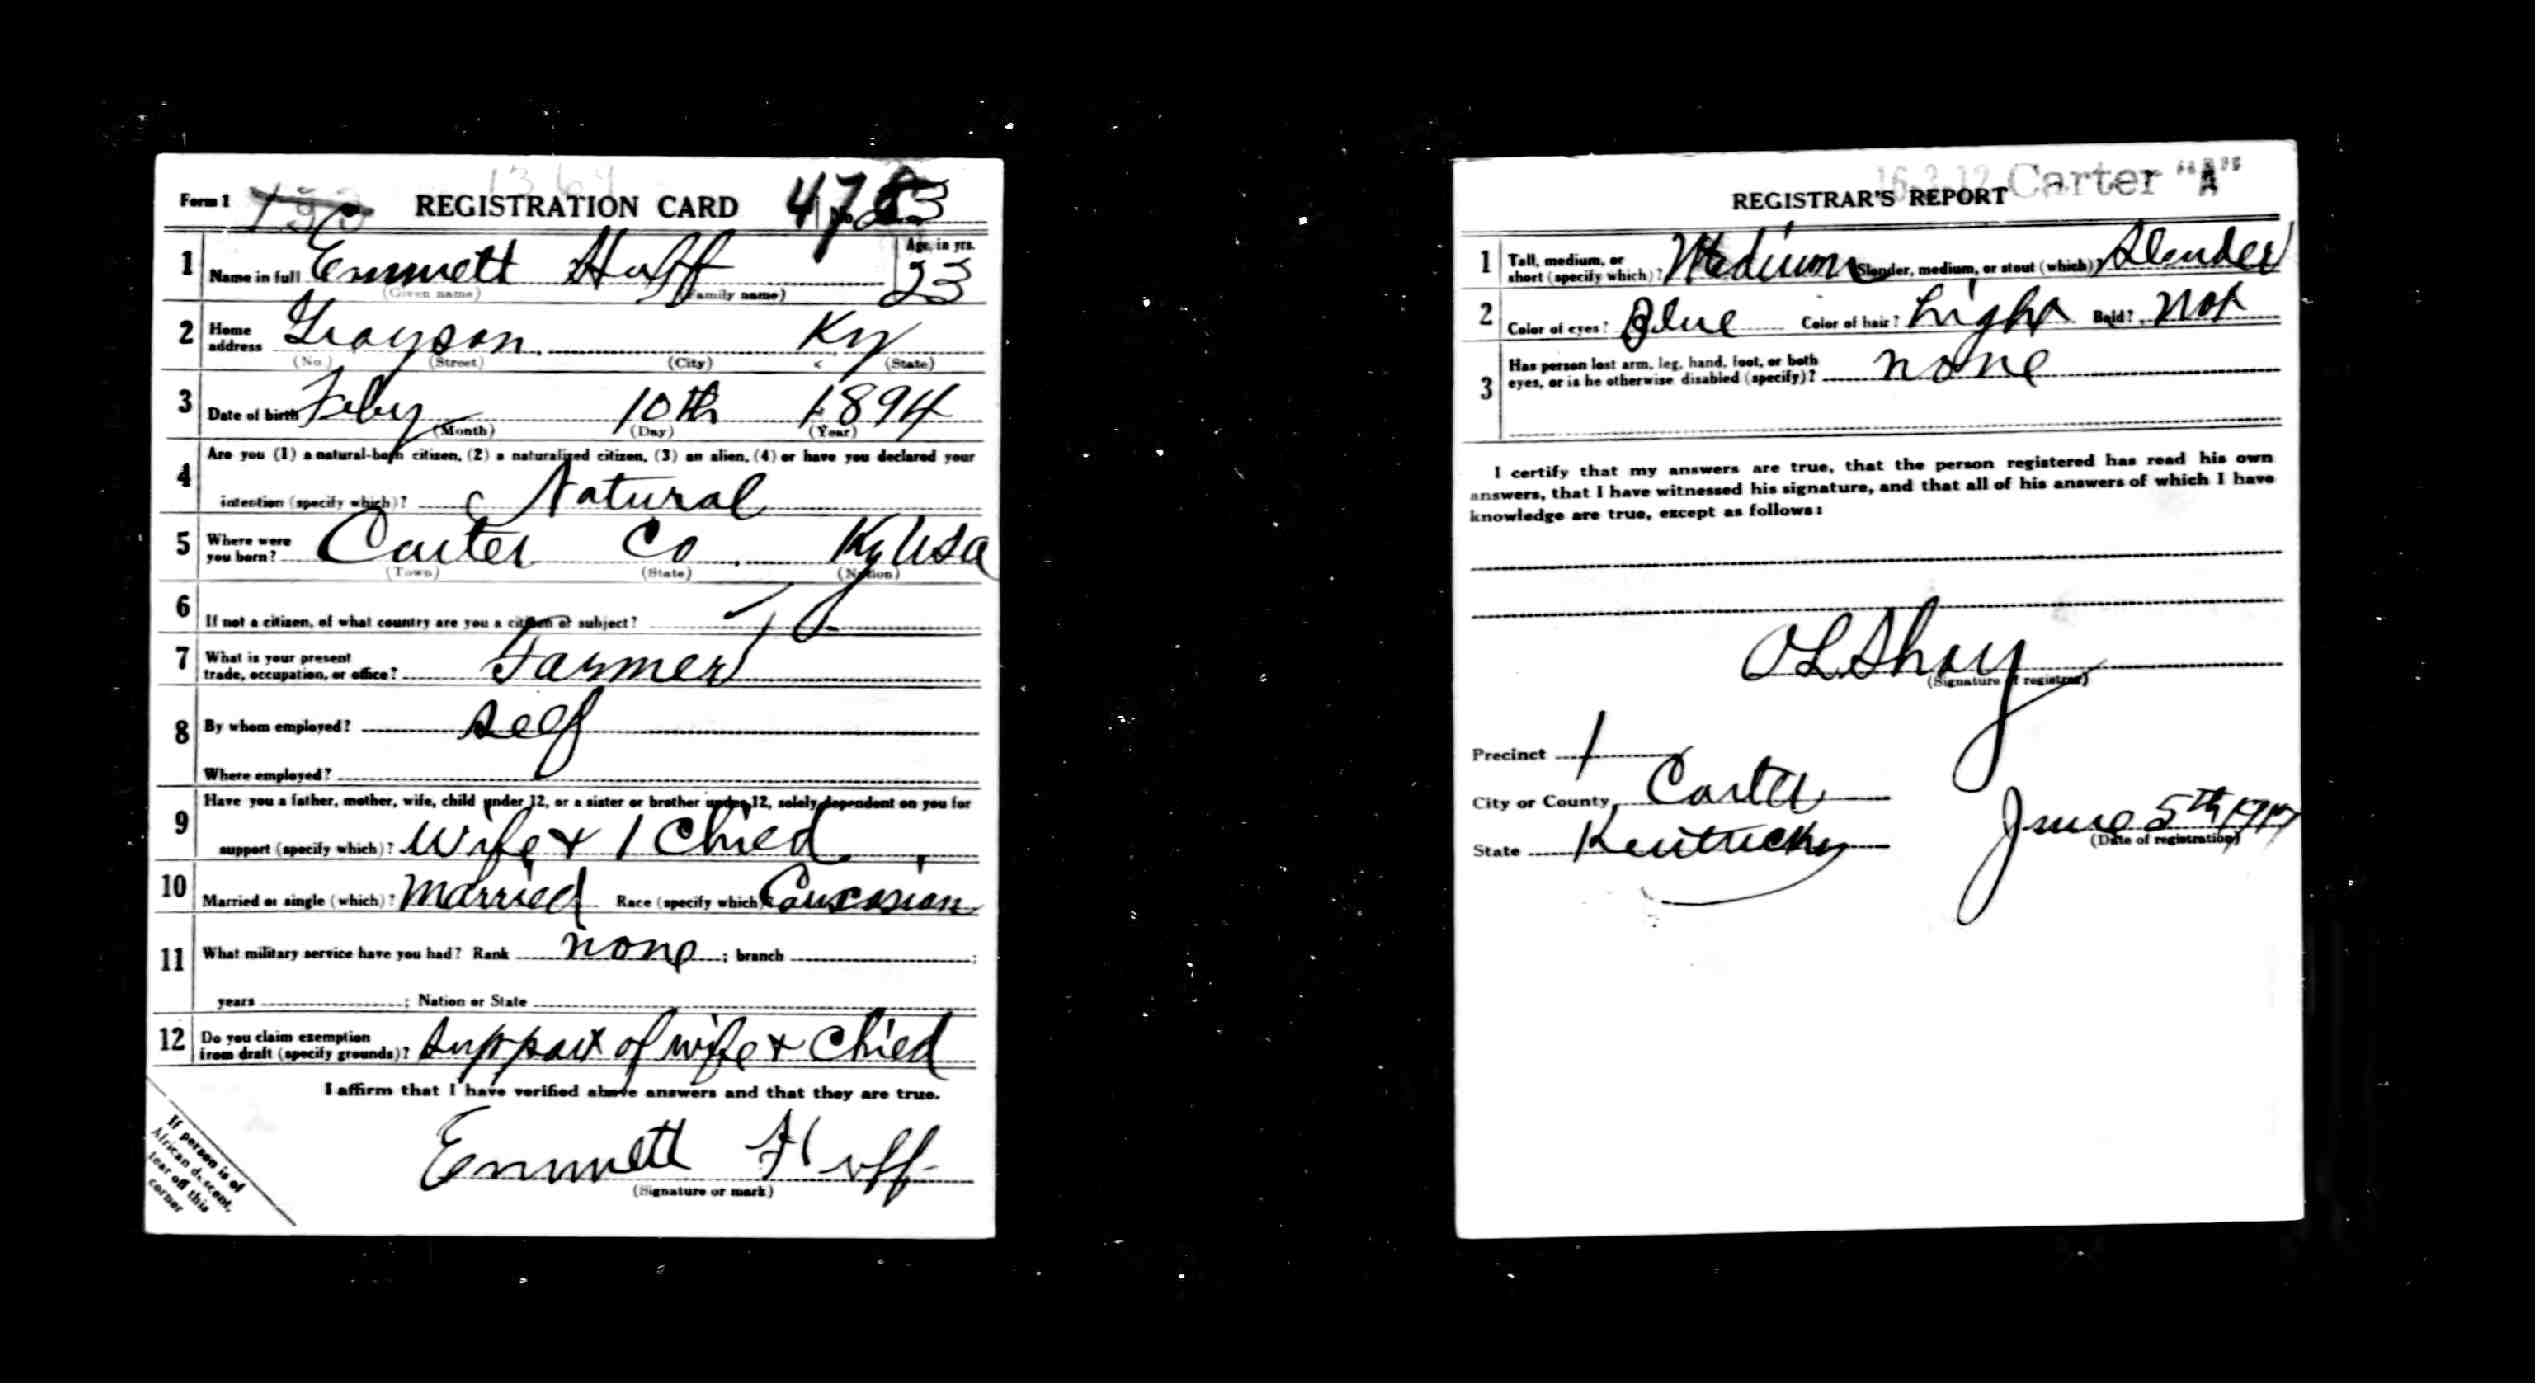 1364
Form 1 REGISTRATION CARD
1 Name in full Emmett Huff Age, in yrs. 23
(Given name) (Family name)
2 Home address Grayson, Ky
(No.) (Street) (City) (State)
3 Date of birth Feby 10th 1894
(Month) (Day) (Year)
4 Are you (1) a natural-born citizen, (2) a naturalized citizen, (3) an alien, (4) or have you declared your
intention (specify which)? Natural
5 Where were you born? Carter Co, Ky Usa
(Town) (State) (Nation)
6 If not a citizen, of what country are you a citizen or subject?
7 What is your present trade, occupation, or office? Farmer
8 By whom employed? self
Where employed?
9 Have you a father, mother, wife, child under 12, or a sister or brother under 12, solely dependent on you for
support (specify which)? Wife + 1 Child
10 Married or single (which)? Married Race (specify which)? Caucasian
11 What military service have you had? Rank none ; branch ;
years ; Nation or State
12 Do you claim exemption from draft (specify grounds)? Support of wife + Child
I affirm that I have verified above answers and that they are true.
Emmett Huff
(Signature or mark)
If person is of
African descent,
tear off this
corner
16-3-12 Carter "A"
REGISTRAR'S REPORT
1 Tall, medium, or short (specify which)? Medium Slender, medium, or stout (which)? Slender
2 Color of eyes? Blue Color of hair? Light Bald? Not
3 Has person lost arm, leg, hand, foot, or both
eyes, or is he otherwise disabled (specify)? none
I certify that my answers are true, that the person registered has read his own
answers, that I have witnessed his signature, and that all of his answers of which I have
knowledge are true, except as follows:
(Signature of registrar)
Precinct 1
City or County Carter
State Kentucky
June 5th 1917
(Date of registration)